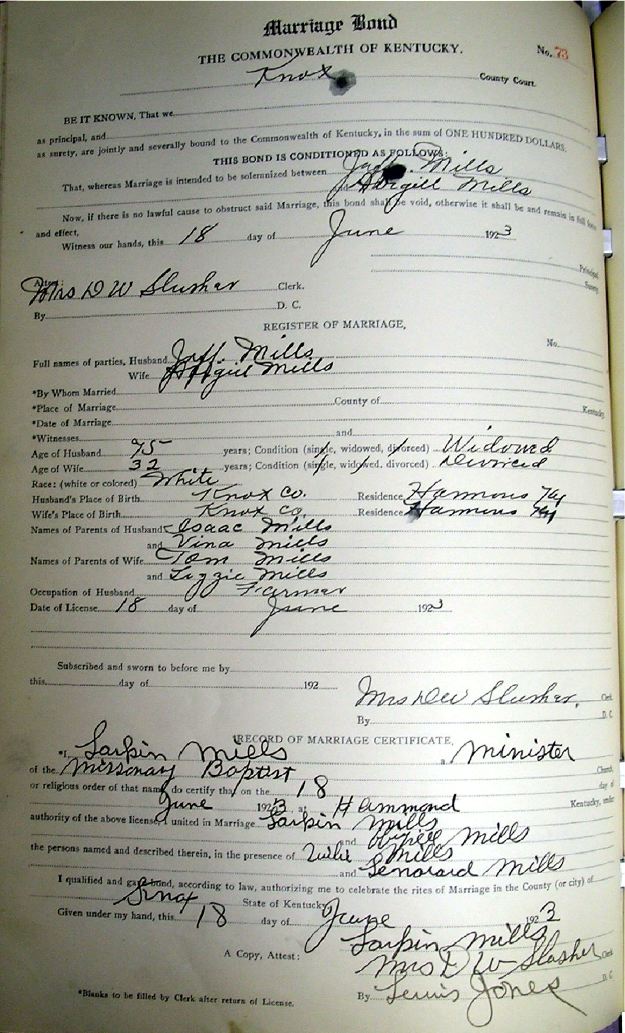 Marriage Bond
THE COMMONWEALTH OF KENTUCKY. No. 73
Knox County Court.
BE IT KNOWN, That we
as principal, and
as surety, are jointly and severally bound to the Commonwealth of Kentucky, in the sum of ONE HUNDRED DOLLARS.
THIS BOND IS CONDITIONED AS FOLLOWS:
That, whereas Marriage is intended to be solemnized between Jeff. Mills
and Abigill Mills
Now, if there is no lawful cause to obstruct said Marriage, this bond shall be void, otherwise it shall be and remain in full force
and effect,
Witness our hands, this 18 day of June 1923
Principal.
Surety.
Attest:
Mrs D W Slusher Clerk.
By D. C.
REGISTER OF MARRIAGE,
No.
Full names of parties, Husband Jeff. Mills
Wife Mills
*By Whom Married
*Place of Marriage County of Kentucky
*Date of Marriage
*Witnesses and
Age of Husband 75 years; Condition (single, widowed, divorced) Widowed
Age of Wife 32 years; Condition (single, widowed, divorced) Divorced
Race: (white or colored) White
Husband's Place of Birth Knox Co. Residence Hammons Ky
Wife's Place of Birth Knox Co. Residence Hammons Ky
Names of Parents of Husband Isaac Mills
and Vina Mills
Names of Parents of Wife Tom Mills
and Lizzie Mills
Occupation of Husband Farmer
Date of License 18 day of June 1923
Subscribed and sworn to before me by
this day of 192
Mrs D W Slusher, Clerk
By D. C.
RECORD OF MARRIAGE CERTIFICATE,
*I, Larkin Mills a Minister
of the Missonary Baptist Church,
or religious order of that name, do certify that on the 18 day of
June 1923 at Hammond Kentucky, under
authority of the above license, I united in Marriage Larkin Mills
and Mills
the persons named and described therein, in the presence of Mills
and Lenoard Mills
I qualified and gave bond, according to law, authorizing me to celebrate the rites of Marriage in the County (or city) of
Knox State of Kentucky
Given under my hand, this 18 day of June 1923
Larkin Mills
A Copy, Attest: Mrs D W Slusher Clerk
By Lewis Jones D. C.
*Blanks to be filled by Clerk after return of License.